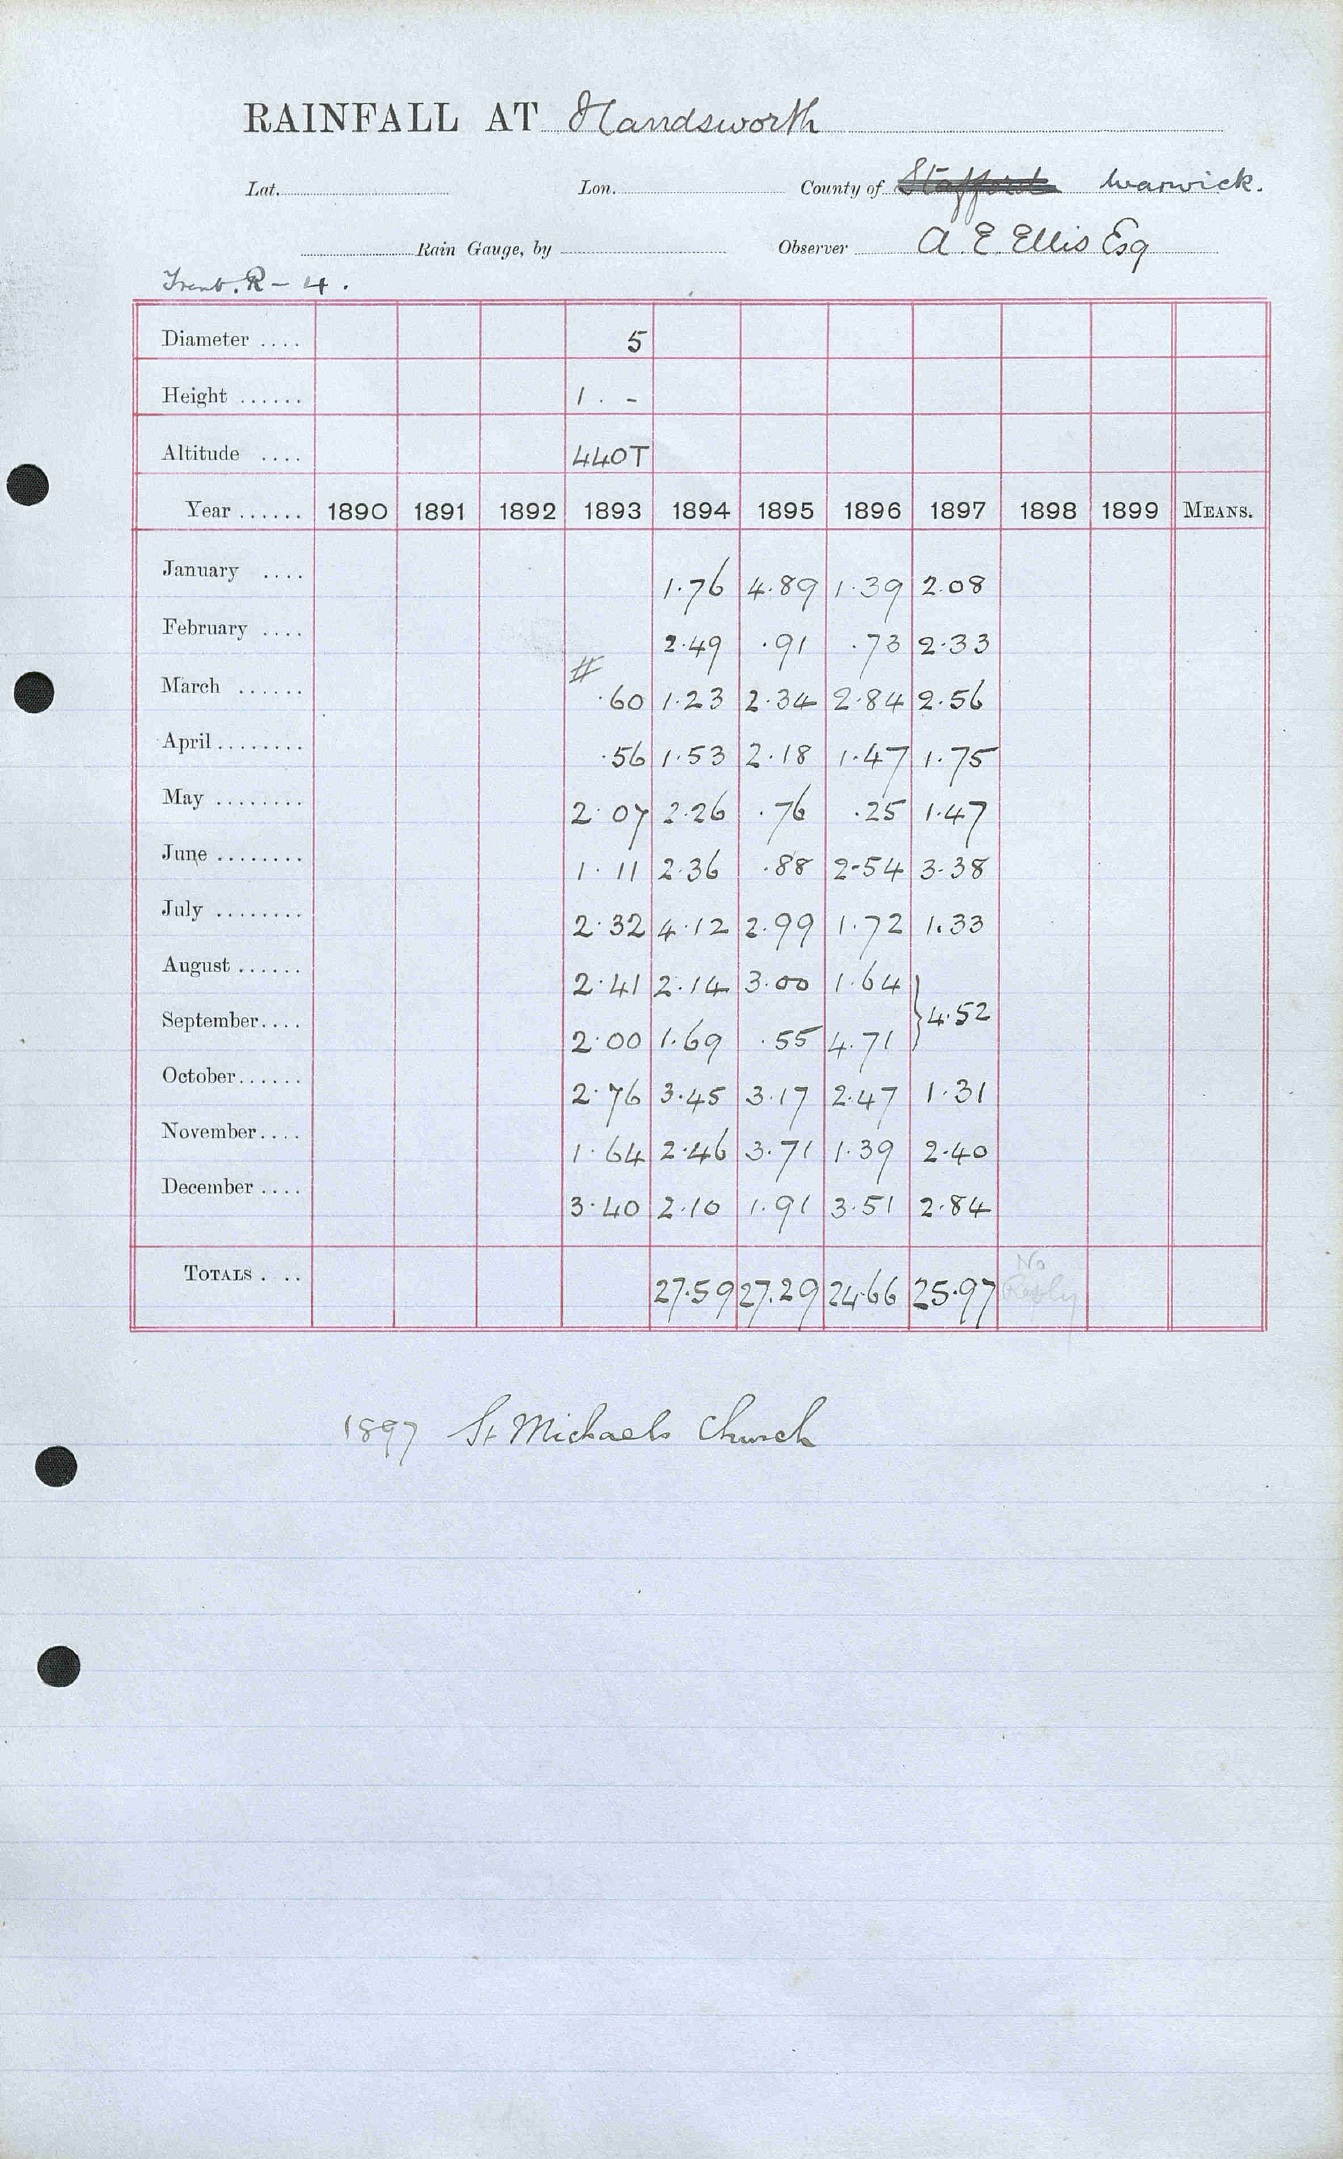 RAINFALL AT Handsworth
Lat. Lon. County of Stafford Warwick.
Rain Gauge, by Observer A. E. Ellis Esq
Trent. R - 4.
Diameter .... 5
Height ...... 1 . -
Altitude .... 440T
Year ...... 1890 1891 1892 1893 1894 1895 1896 1897 1898 1899 MEANS.
January .... 1.76 4.89 1.39 2.08
February .... 2.49 .91 .73 2.33
#
March ...... .60 1.23 2.34 2.84 2.56
April ........ .56 1.53 2.18 1.47 1.75
May ........ 2.07 2.26 .76 .25 1.47
June ........ 1.11 2.36 .88 2.54 3.38
July ........ 2.32 4.12 2.99 1.72 1.33
August ...... 2.41 2.14 3.00 1.64
} 4.52
September.... 2.00 1.69 .55 4.71
October...... 2.76 3.45 3.17 2.47 1.31
November.... 1.64 2.46 3.71 1.39 2.40
December .... 3.40 2.10 1.91 3.51 2.84
TOTALS . .. 27.59 27.29 24.66 25.97 No Reply
1897 St Michaels Church